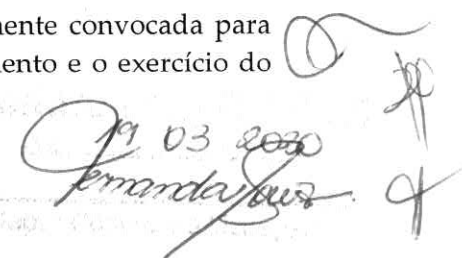 mente convocada para
ento e o exercício do
19 03 2020
Fernanda